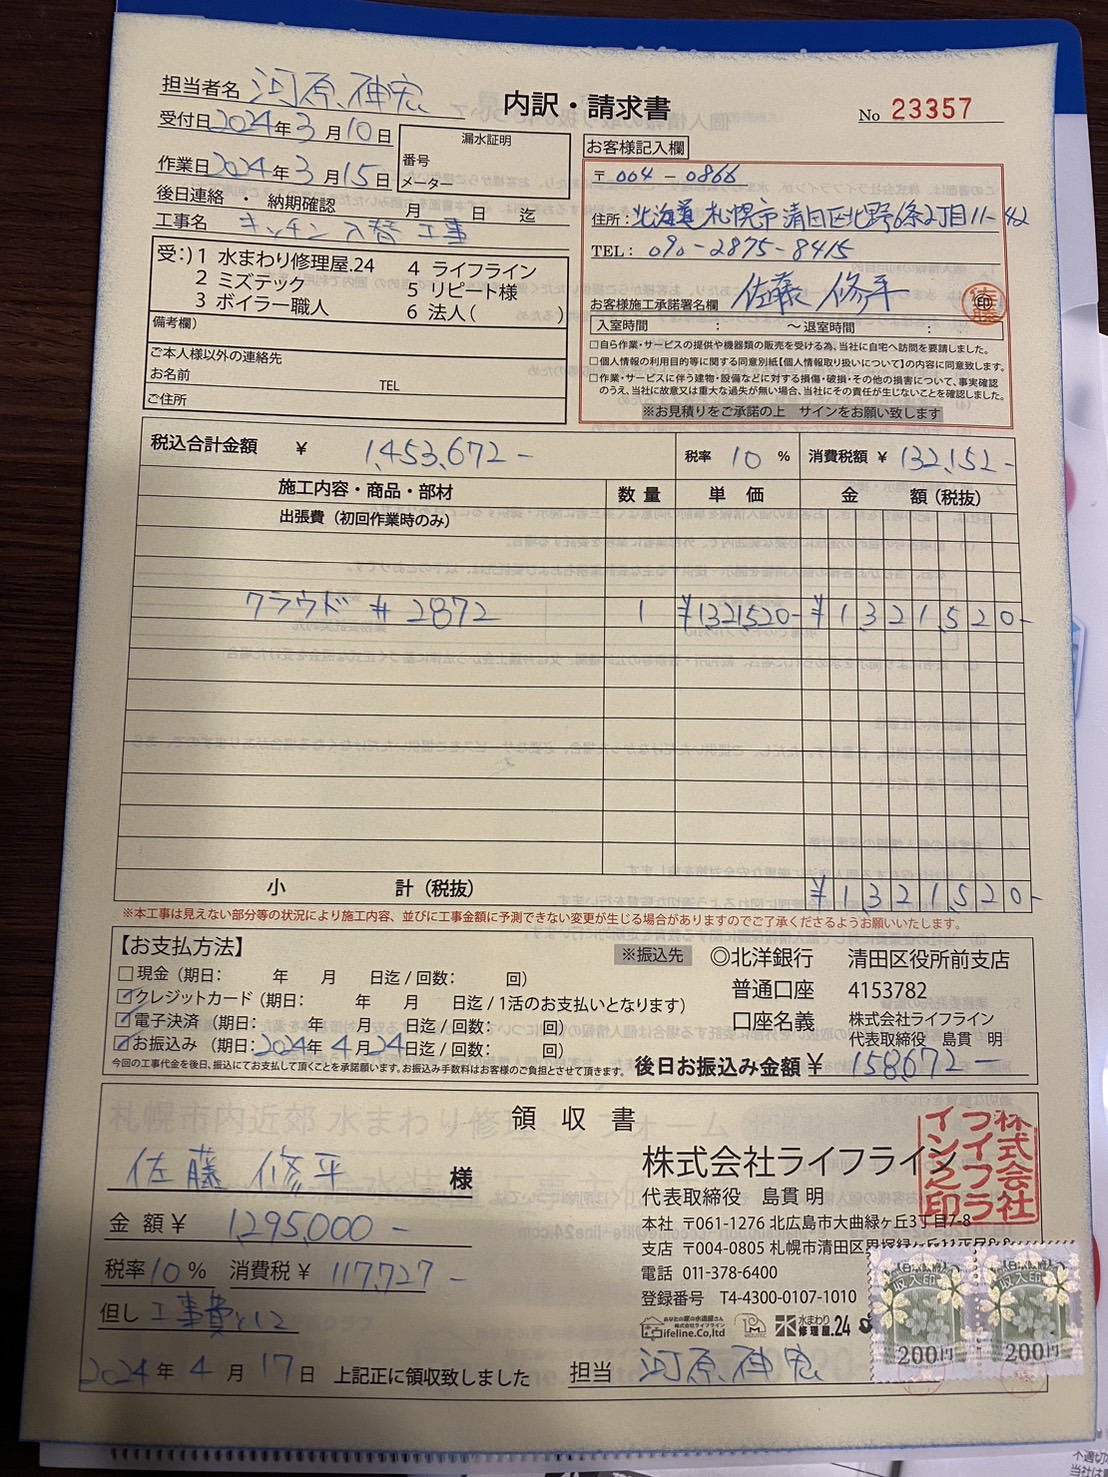 内訳・請求書
No 23357
担当者名 河原 伸宏
受付日 2024年 3月 10日
作業日 2024年 3月 15日
漏水証明
番号
メーター
後日連絡 ・ 納期確認 月 日 迄
工事名 キッチン入替工事
受:)1 水まわり修理屋.24 4 ライフライン
2 ミズテック 5 リピート様
3 ボイラー職人 6 法人( )
備考欄)
ご本人様以外の連絡先
お名前 TEL
ご住所
お客様記入欄
〒004-0866
住所:北海道札幌市清田区北野6条2丁目11-42
TEL: 090-2875-8415
お客様施工承諾署名欄 佐藤 修平 ㊞ 佐藤
入室時間 : ~退室時間 :
□自ら作業・サービスの提供や機器類の販売を受ける為、当社に自宅へ訪問を要請しました。
□個人情報の利用目的等に関する同意別紙【個人情報取り扱いについて】の内容に同意致します。
□作業・サービスに伴う建物・設備などに対する損傷・破損・その他の損害について、事実確認
のうえ、当社に故意又は重大な過失が無い場合、当社にその責任が生じないことを確認しました。
※お見積りをご承諾の上 サインをお願い致します
税込合計金額 ¥ 1,453,672- 税率 10 % 消費税額 ¥ 132,152-
施工内容・商品・部材 数 量 単 価 金 額(税抜)
出張費(初回作業時のみ)
クラウド # 2872 1 ¥1321,520- ¥1321520-
小 計(税抜) ¥1321520-
※本工事は見えない部分等の状況により施工内容、並びに工事金額に予測できない変更が生じる場合がありますのでご了承くださるようお願いいたします。
【お支払方法】
□現金(期日: 年 月 日迄 / 回数: 回)
☑クレジットカード(期日: 年 月 日迄 / 1活のお支払いとなります)
☑電子決済(期日: 年 月 日迄 / 回数: 回)
☑お振込み(期日:2024年 4月24日迄 / 回数: 回)
今回の工事代金を後日、振込にてお支払して頂くことを承諾願います。お振込み手数料はお客様のご負担とさせて頂きます。
※振込先 ◎北洋銀行 清田区役所前支店
普通口座 4153782
口座名義 株式会社ライフライン
代表取締役 島貫 明
後日お振込み金額 ¥ 158,672-
領 収 書
佐藤 修平 様
金 額 ¥ 1,295,000-
税率 10 % 消費税 ¥ 117,727-
但し 工事費として
2024年 4月 17日 上記正に領収致しました
株式会社ライフライン
代表取締役 島貫 明
本社 〒061-1276 北広島市大曲緑ヶ丘3丁目7-8
支店 〒004-0805 札幌市清田区里塚緑ヶ丘11丁目
電話 011-378-6400
登録番号 T4-4300-0107-1010
ifeline.Co,ltd
水まわり修理屋.24
担当 河原 伸宏
株式会社ライフライン之印
収入印紙
200円
収入印紙
200円